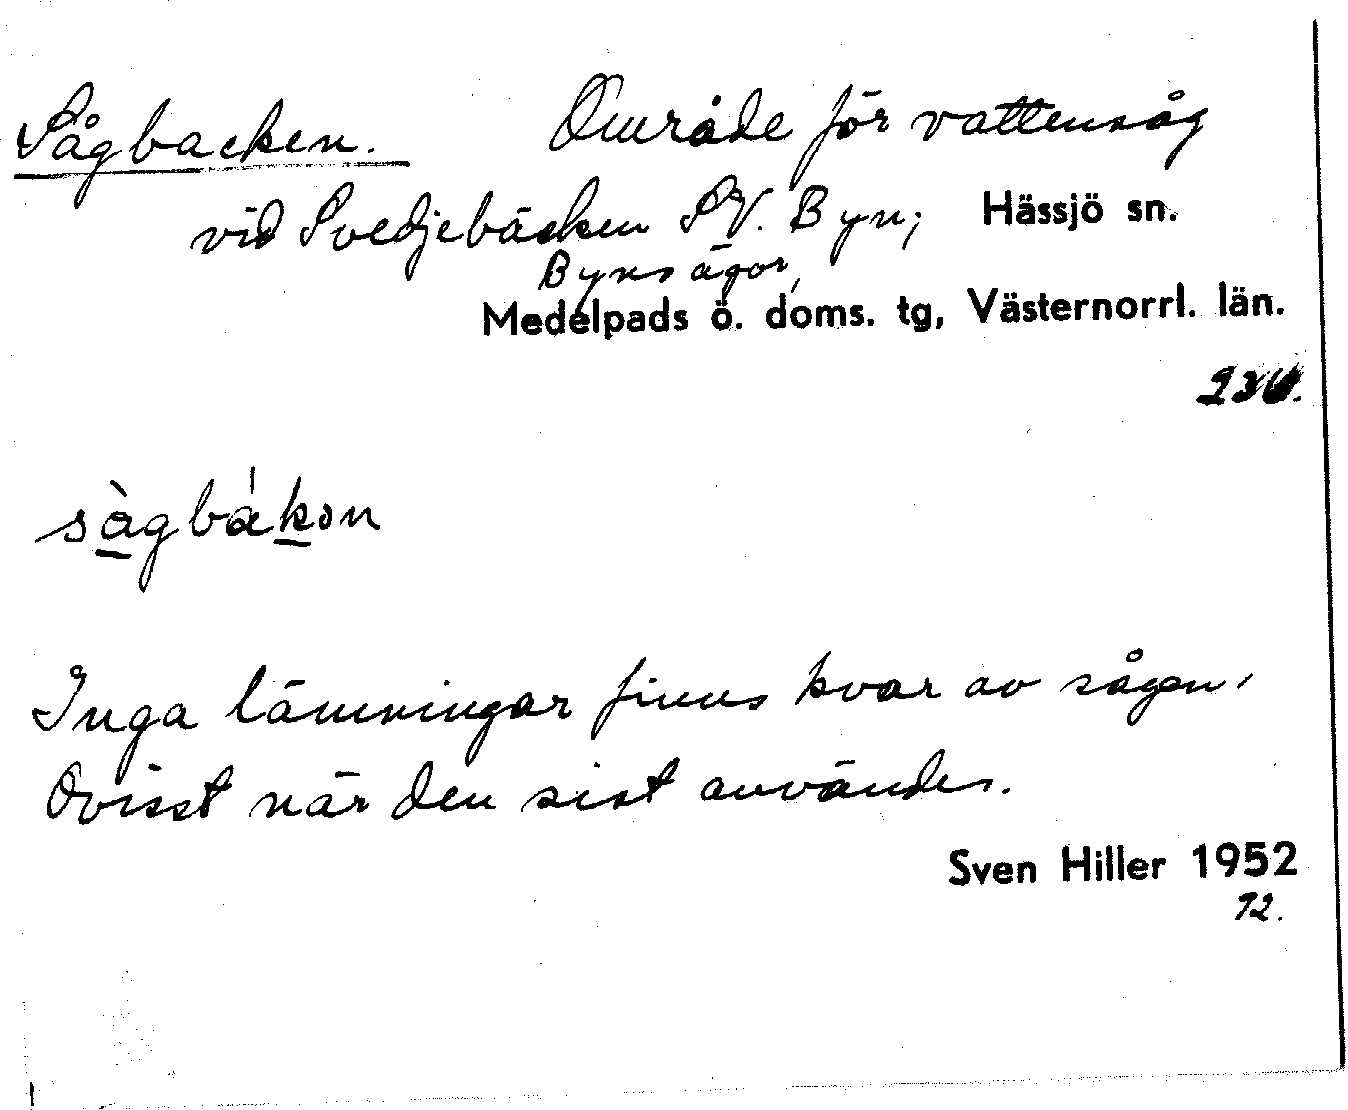 Sågbacken. Område för vattensåg
vid Svedjebäcken SV. Byn; Hässjö sn.
Byns ägor,
Medelpads ö. doms. tg, Västernorrl. län.
sàgbákon
Inga lämningar finns kvar av sågen,
Ovisst när den sist användes.
Sven Hiller 1952
72.